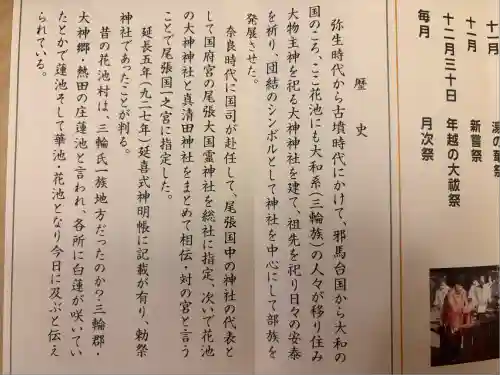 十一月 湯の華祭
十一月 新嘗祭
十二月三十日 年越の大祓祭
毎月 月次祭
歴史
弥生時代から古墳時代にかけて、邪馬台国から大和の
国のころ、ここ花池にも大和系(三輪族)の人々が移り住み
大物主神を祀る大神神社を建て、祖先を祀り日々の安泰
を祈り、団結のシンボルとして神社を中心にして部族を
発展させた。
奈良時代に国司が赴任して、尾張国中の神社の代表と
して国府宮の尾張大国霊神社を総社に指定、次いで花池
の大神神社と真清田神社をまとめて相伝・対の宮と言う
ことで尾張国一之宮に指定した。
延長五年(九二七年)延喜式神明帳に記載が有り、勅祭
神社であったことが判る。
昔の花池村は、三輪氏一族地方だったのか?三輪郡・
大神郷・熱田の庄蓮池と言われ、各所に白蓮が咲いてい
たとかで蓮池そして華池・花池となり今日に及ぶと伝え
られている。